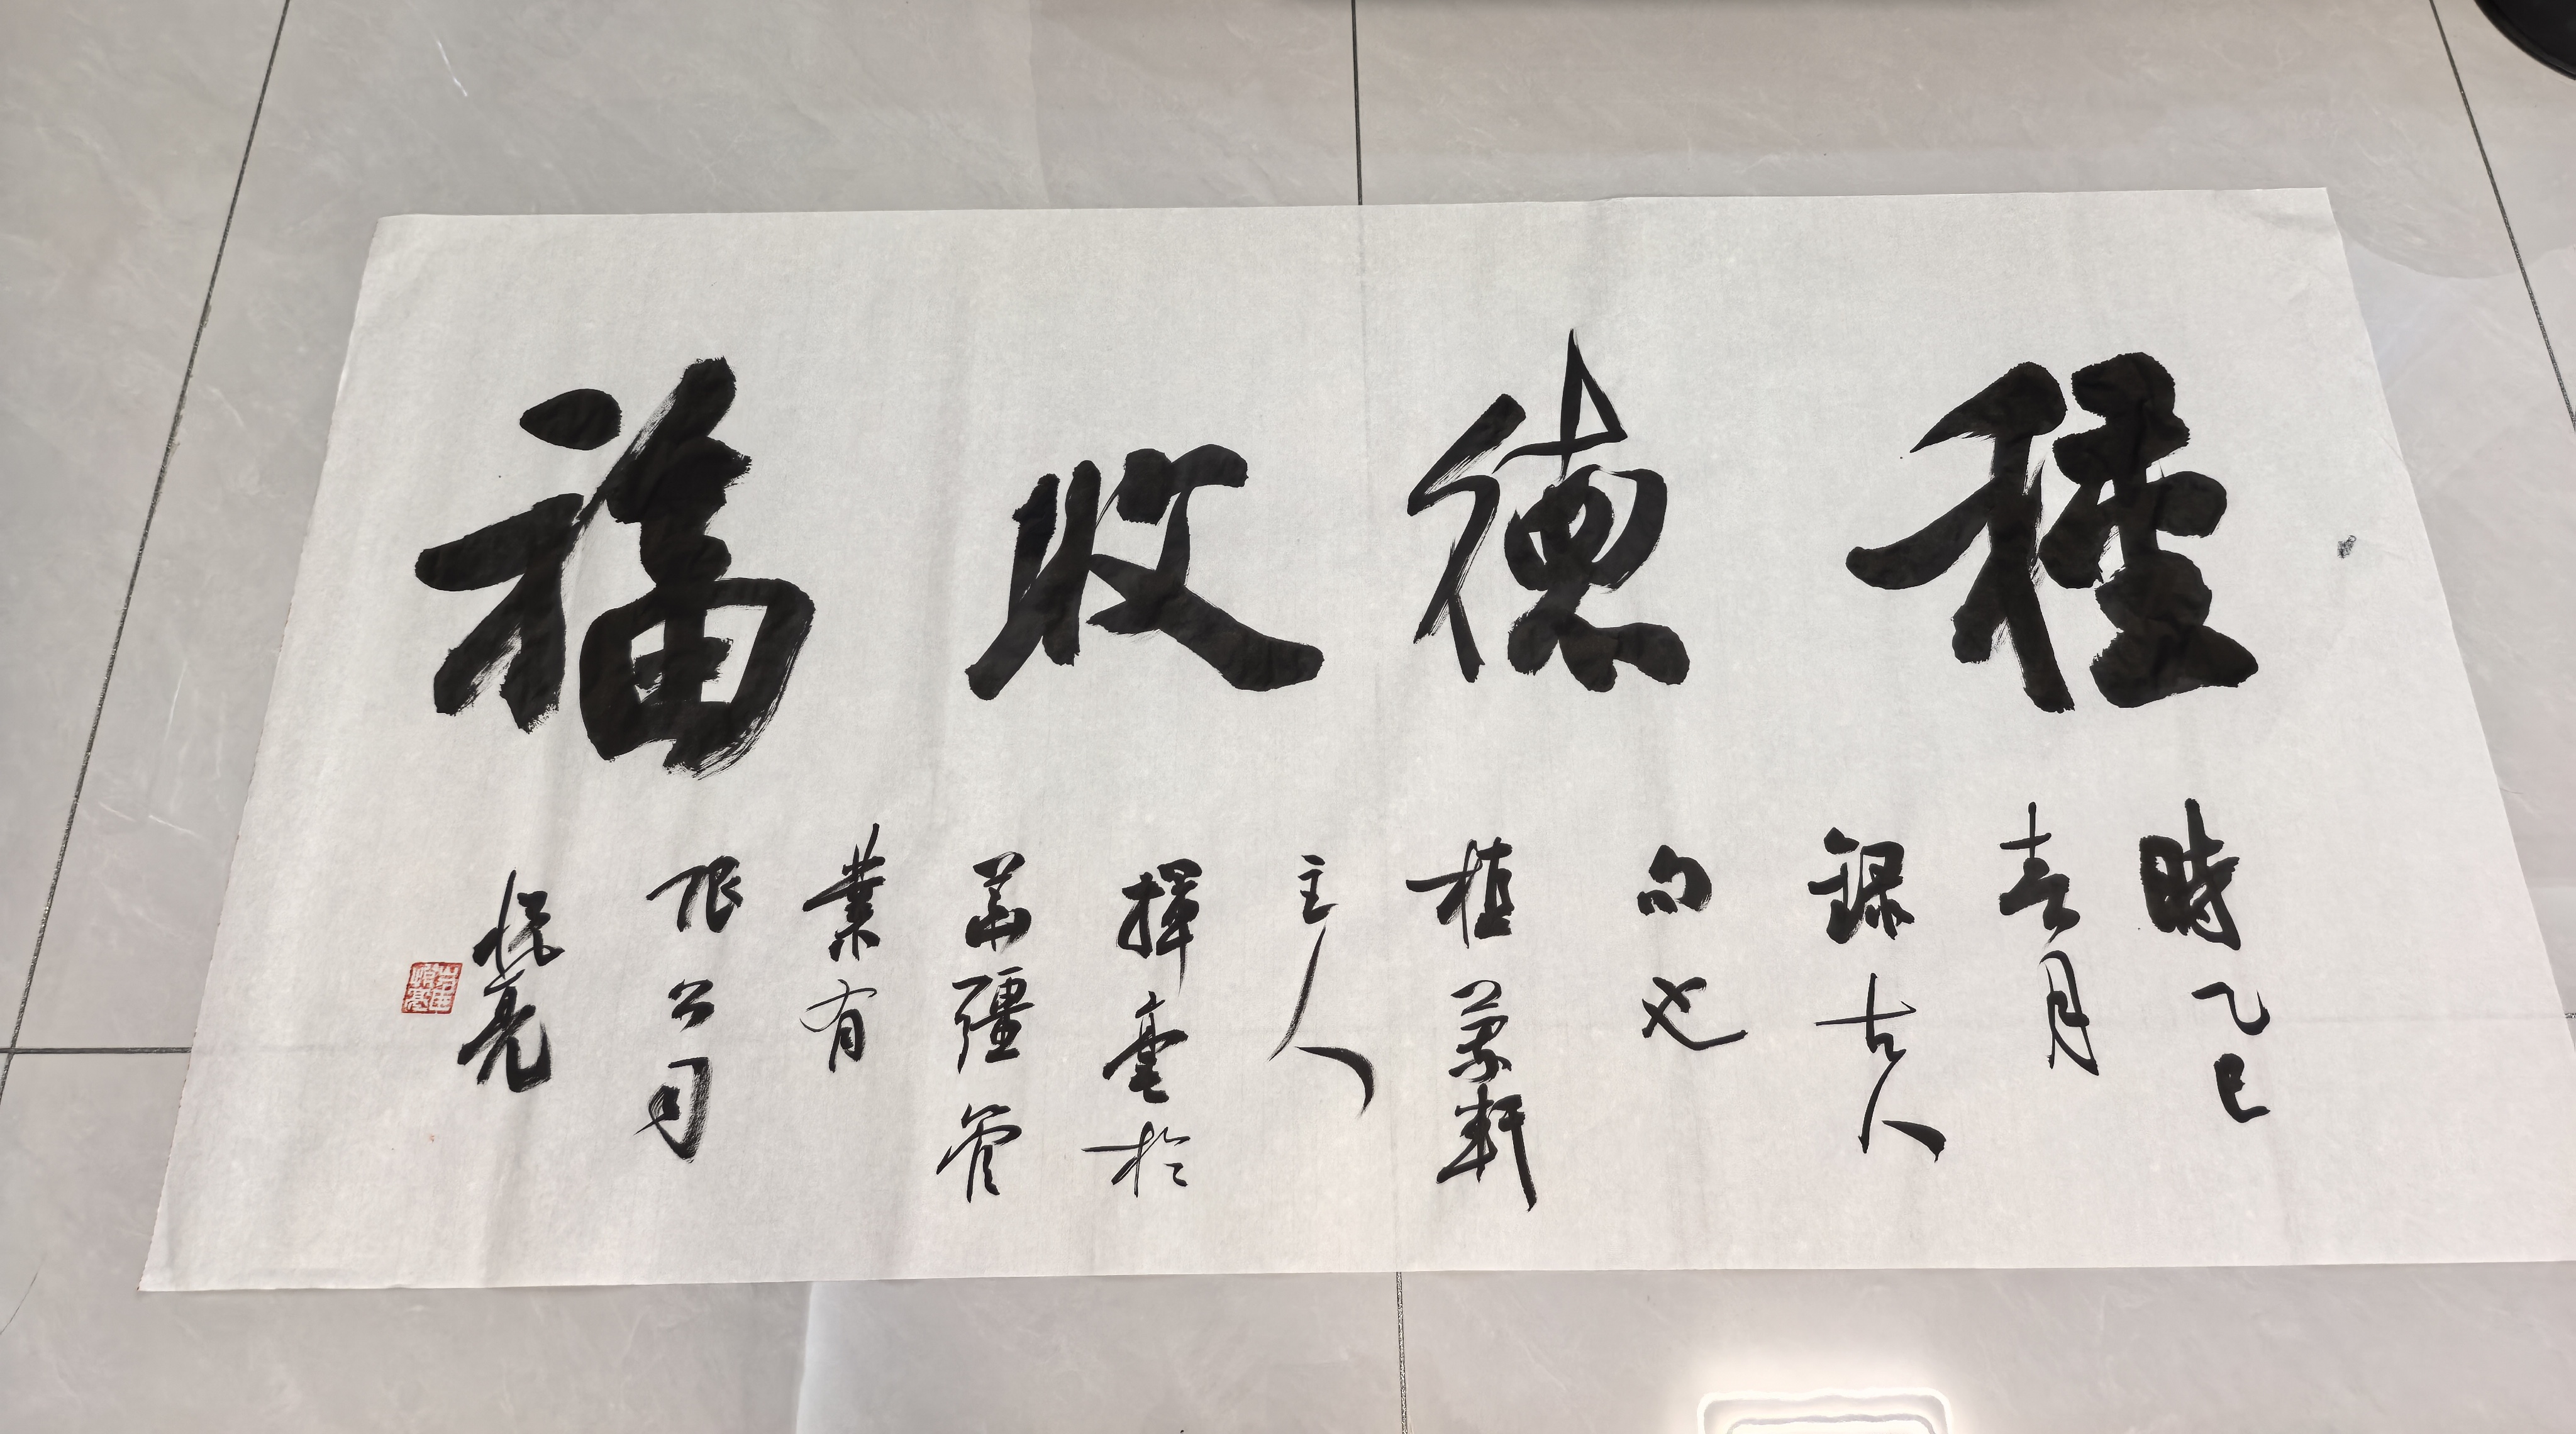 種德收福
時乙巳
春月
錄古人
句也
植蘭軒
主人
揮毫於
華疆管
業有
限公司
悅亮